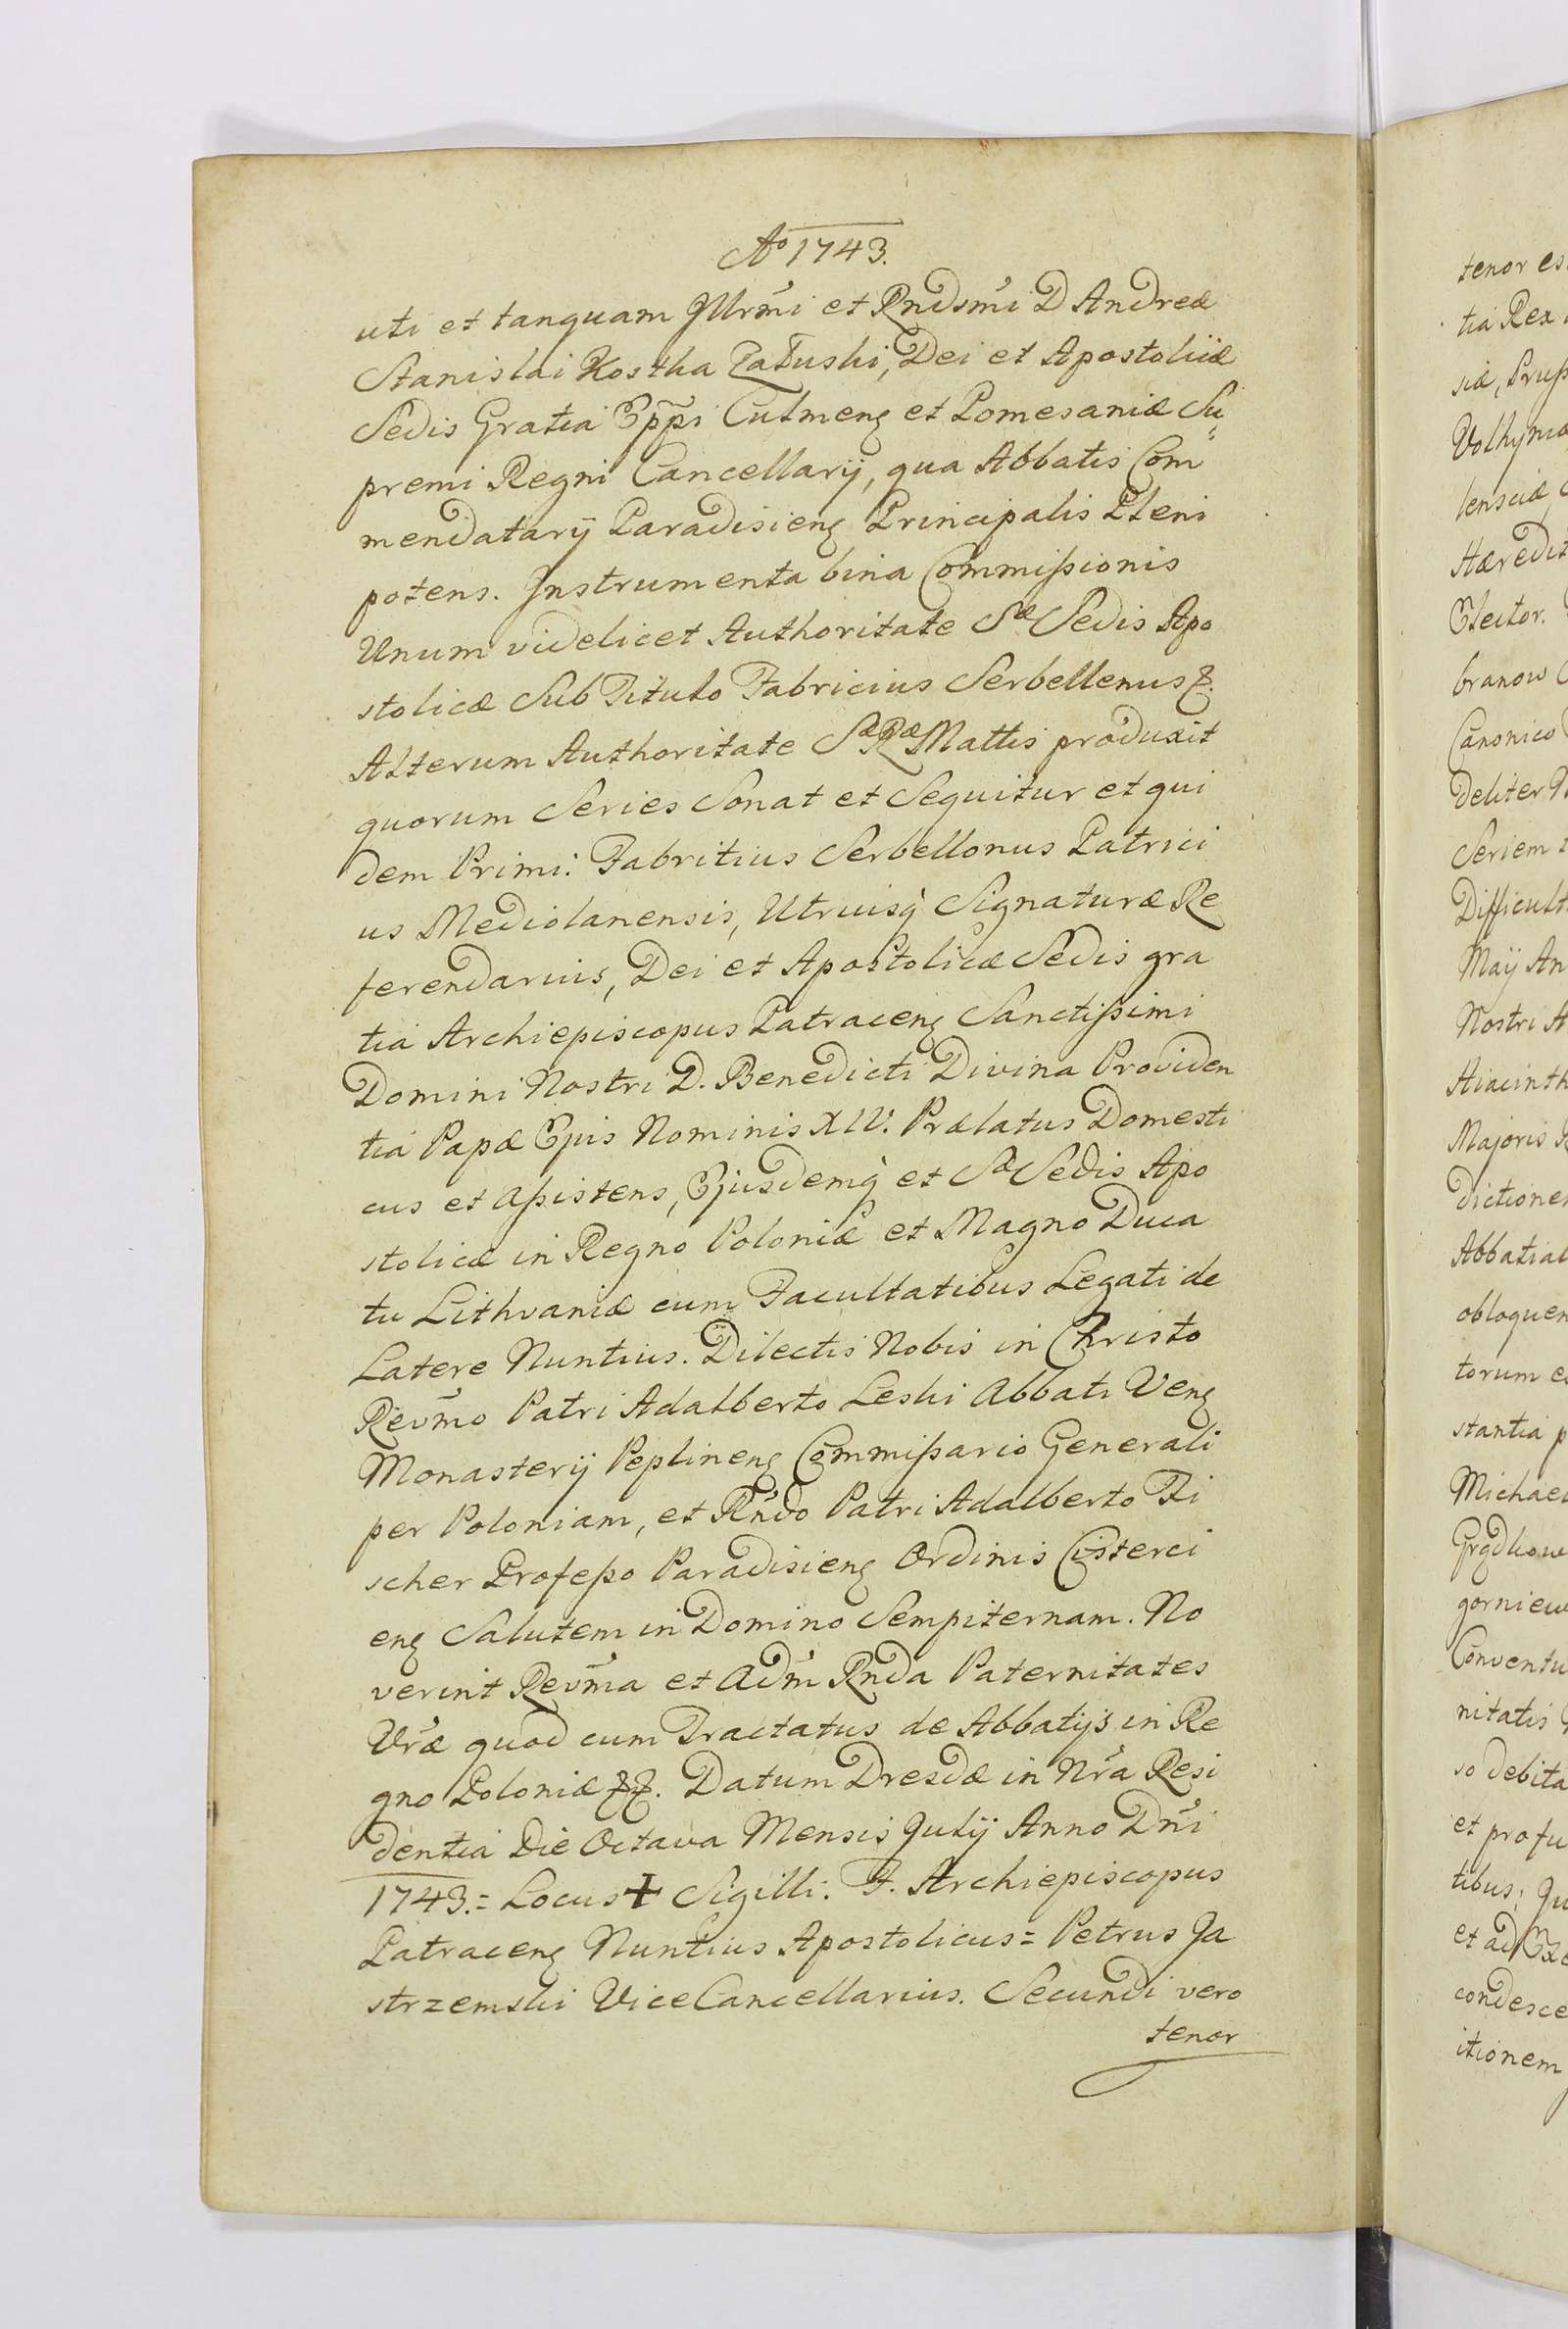 Aº 1743.
uti et tanquam Jllrm̃i et Rndsm̃i D Andreæ
Stanislai Kostka Załuski, Dei et Apostoliiæ
Sedis Gratia Epp̃i Culmenȝ et Pomesaniæ Su„
premi Regni Cancellarij, qua Abbatis Com
mendatarij Paradisienȝ Principalis Pleni
potens. Jnstrumenta bina Commißionis
Unum videlicet Authoritate Sæ Sedis Apo
stolicæ Sub Titulo Fabricius Serbellenus &.
Alterum Authoritate Sæ Ræ Mattis produxit
quorum Series Sonat et Sequitur et qui
dem Primi: Fabritius Serbellonus Patrici
us Mediolanensis, Utriusq̀ Signaturæ Re
ferendarius, Dei et Apostolicæ Sedis gra
tia Archiepiscopus Patracenȝ Sanctißimi
Domini Nostri D. Benedicti Divina Providen
tia Papæ Ejus Nominis XIV. Prælatus Domesti
cus et aßistens, Ejusdemq̀ et Sæ Sedis Apo
stolicæ in Regno Poloniæ et Magno Duca
tu Lithvaniæ cum Facultatibus Legati de
Latere Nuntius. Dilectis Nobis in Christo
Revm̃o Patri Adalberto Leski Abbati Venȝ
Monasterij Peplinenȝ Commißario Generali
per Poloniam, et Rñdo Patri Adalberto Fi
scher Profeßo Paradisienȝ Ordinis Cisterci
enȝ Salutem in Domino Sempiternam. No
verint Revm̃a et Adm̃ Rnda Paternitates
Vr̃æ quod cum Tractatus de Abbatijs in Re
gno Poloniæ &&. Datum Dresdæ in Nr̃a Resi
dentia Die Octava Mensis Julij Anno Dñi
1743.= Locus ✝ Sigilli. F. Archiepiscopus
Patracenȝ Nuntius Apostolicus= Petrus Ja
strzemski ViceCancellarius. Secundi vero
tenor
tia Rex
Volhyniæ
lensciæ
Elector.
branow
Canonico
deliter
Seriem
Maij An
Nostri A
Majoris
torum
stantia
nitatis
so debita
et profu
tibus,
et ad
itionem